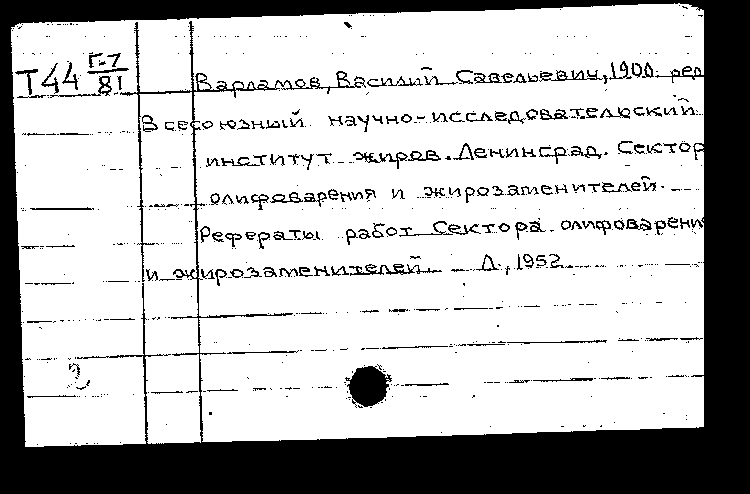 Т44 Г-7/81
Варламов, Василий Савельевич, 1900. ред
Всесоюзный научно-исследовательский
институт жиров. Ленинград. Сектор
олифоварения и жирозаменителей.
Рефераты работ Сектора олифоварени
и жирозаменителей. Л., 1952.
2